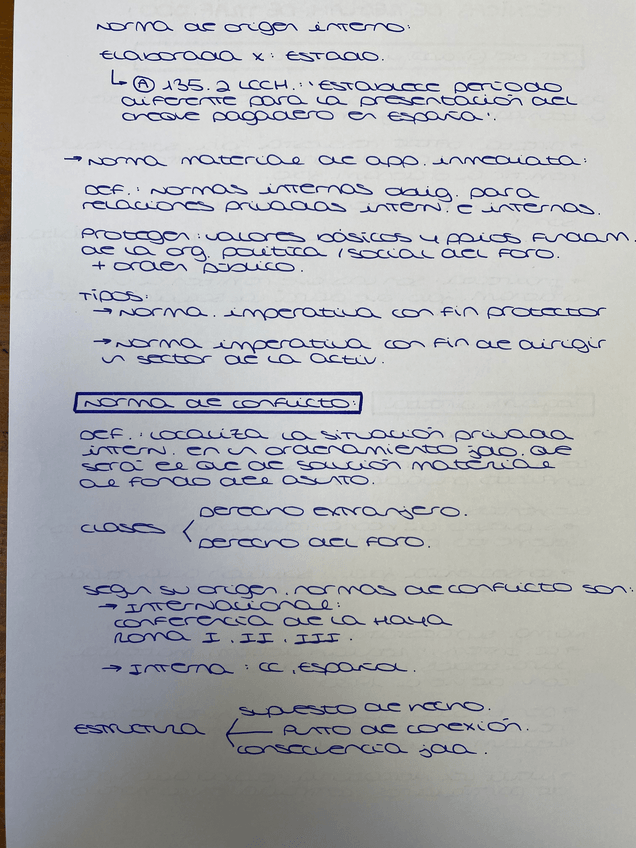 Norma de origen interno:
Elaborada x: ESTADO.
↳ Ⓐ 135.2 LCCH.: "Establece período
diferente para la presentación del
cheque pagadero en España".
→ Norma material de app. inmediata:
DEF.: Normas internas oblig. para
relaciones privadas intern. e internas.
Proteger: valores básicos y ppios fundam.
de la org. política / social del foro.
+ orden público.
Tipos:
→ Norma. imperativa con fin protector
→ Norma imperativa con fin de dirigir
un sector de la activ.
NORMA DE CONFLICTO:
DEF.: Localiza la situación privada
intern. en un ordenamiento jdo. que
será el que dé solución material
al fondo del asunto.
CLASES < Derecho extranjero.
Derecho del foro.
Según su origen, normas de conflicto son:
→ Internacional:
Conferencia de la Haya
Roma I, II, III.
→ Interna: CC, Español.
supuesto de hecho.
ESTRUCTURA ← Punto de conexión.
consecuencia jda.